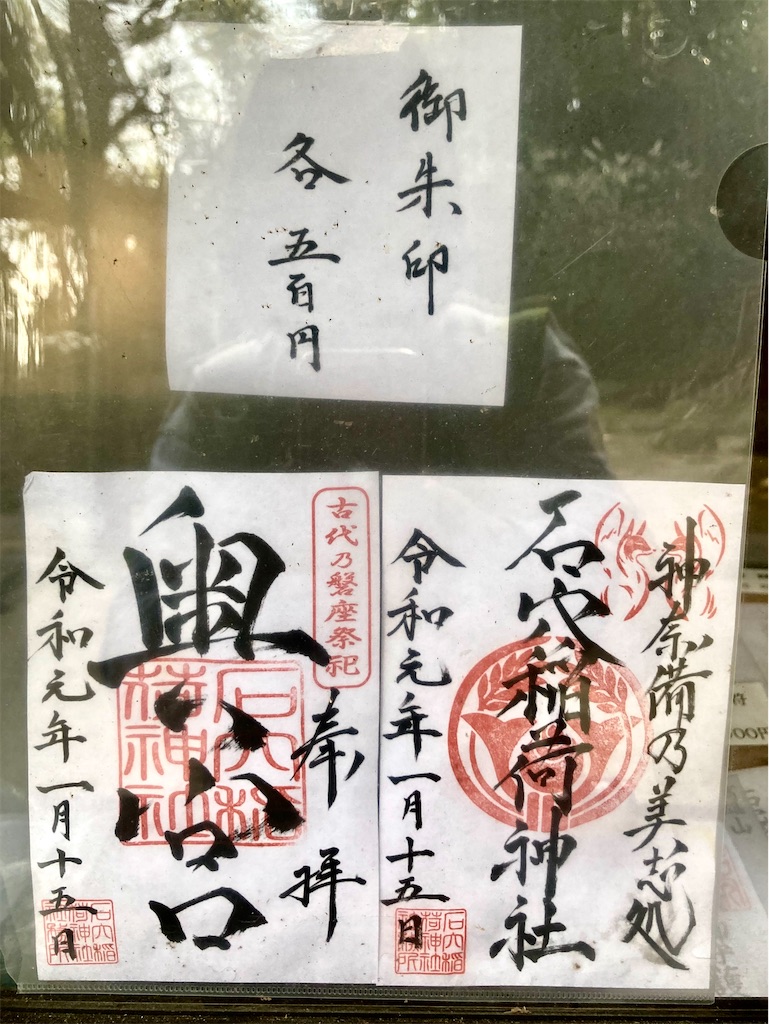 御朱印
各五百円
神奈備乃美志処
石穴稲荷神社
令和元年一月十五日
石穴稲
荷神社
古代乃磐座祭祀
奉拝
奥宮
石穴稲
荷神社
令和元年一月十五日
石穴稲
荷神社